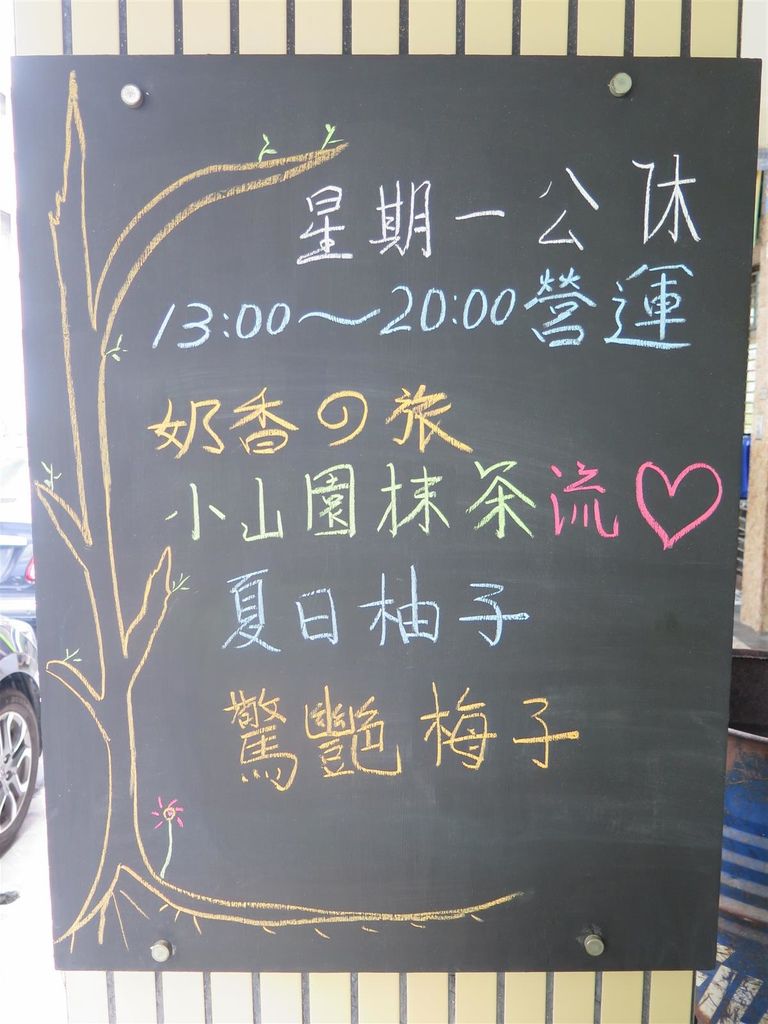 星期一公休
13:00～20:00營運
奶香の旅
小山園抹茶流♡
夏日柚子
驚艷梅子